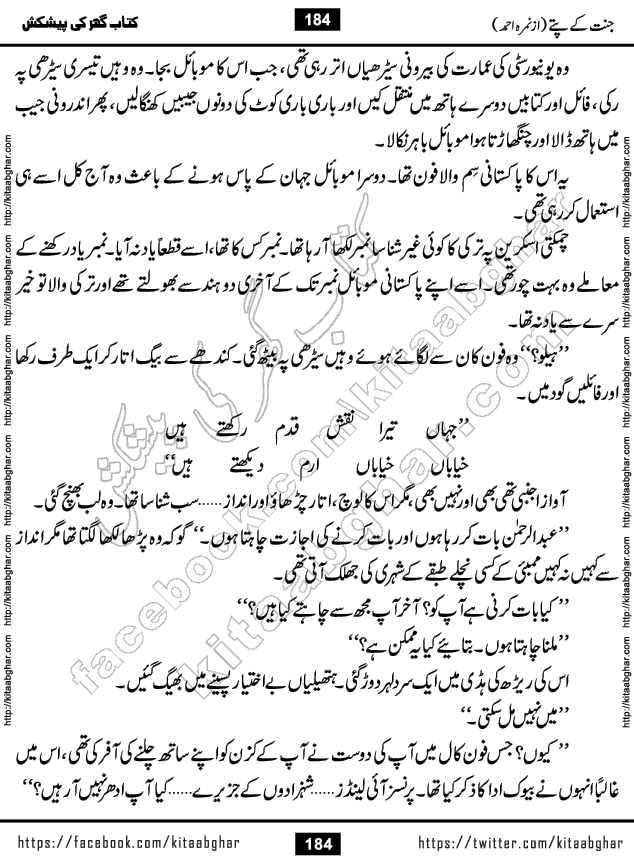 جنت کے پتے (از نمرہ احمد) 184 کتاب گھر کی پیشکش
وہ یونیورسٹی کی عمارت کی بیرونی سیڑھیاں اتر رہی تھی، جب اس کا موبائل بجا۔ وہ وہیں تیسری سیڑھی پہ
رکی، فائل اور کتابیں دوسرے ہاتھ میں منتقل کیں اور باری باری کوٹ کی دونوں جیبیں کھنگالیں، پھر اندرونی جیب
میں ہاتھ ڈالا اور چنگھاڑتا ہوا موبائل باہر نکالا۔
یہ اس کا پاکستانی سِم والا فون تھا۔ دوسرا موبائل جہان کے پاس ہونے کے باعث وہ آج کل اسے ہی
استعمال کر رہی تھی۔
چمکتی اسکرین پہ ترکی کا کوئی غیر شناسا نمبر لکھا آ رہا تھا۔ نمبر کس کا تھا، اسے قطعاً یاد نہ آیا۔ نمبر یاد رکھنے کے
معاملے وہ بہت چور تھی۔ اسے اپنے پاکستانی موبائل نمبر تک کے آخری دو ہندسے بھولتے تھے اور ترکی والا تو خیر
سرے سے یاد نہ تھا۔
’’ہیلو؟‘‘ وہ فون کان سے لگائے ہوئے وہیں سیڑھی پہ بیٹھ گئی۔ کندھے سے بیگ اتار کر ایک طرف رکھا
اور فائلیں گود میں۔
’’جہاں تیرا نقش قدم رکھتے ہیں
خیاباں خیاباں ارم دیکھتے ہیں‘‘
آواز اجنبی تھی بھی اور نہیں بھی، مگر اس کا لوچ، اتار چڑھاؤ اور انداز......سب شناسا تھا۔ وہ لب بھینچ گئی۔
’’عبدالرحمٰن بات کر رہا ہوں اور بات کرنے کی اجازت چاہتا ہوں۔‘‘ گو کہ وہ پڑھا لکھا لگتا تھا مگر انداز
سے کہیں نہ کہیں ممبئی کے کسی نچلے طبقے کے شہری کی جھلک آتی تھی۔
’’کیا بات کرنی ہے آپ کو؟ آخر آپ مجھ سے چاہتے کیا ہیں؟‘‘
’’ملنا چاہتا ہوں۔ بتائیے کیا یہ ممکن ہے؟‘‘
اس کی ریڑھ کی ہڈی میں ایک سرد لہر دوڑ گئی۔ ہتھیلیاں بے اختیار پسینے میں بھیگ گئیں۔
’’میں نہیں مل سکتی۔‘‘
’’کیوں؟ جس فون کال میں آپ کی دوست نے آپ کے کزن کو اپنے ساتھ چلنے کی آفر کی تھی، اس میں
غالباً انہوں نے بیوک ادا کا ذکر کیا تھا۔ پرنسز آئی لینڈز......شہزادوں کے جزیرے......کیا آپ ادھر نہیں آ رہیں؟‘‘
کتاب گھر کی پیشکش
kitaabghar.com
facebook.com/kitaabghar
http://kitaabghar.com http://kitaabghar.com http://kitaabghar.com http://kitaabghar.com http://kitaabghar.com http://kitaabghar.com
http://kitaabghar.com http://kitaabghar.com http://kitaabghar.com http://kitaabghar.com http://kitaabghar.com http://kitaabghar.com
https://facebook.com/kitaabghar 184 https://twitter.com/kitaabghar